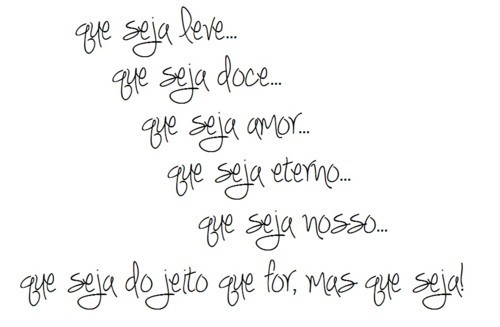 que seja leve...
que seja doce...
que seja amor...
que seja eterno...
que seja nosso...
que seja do jeito que for, mas que seja!